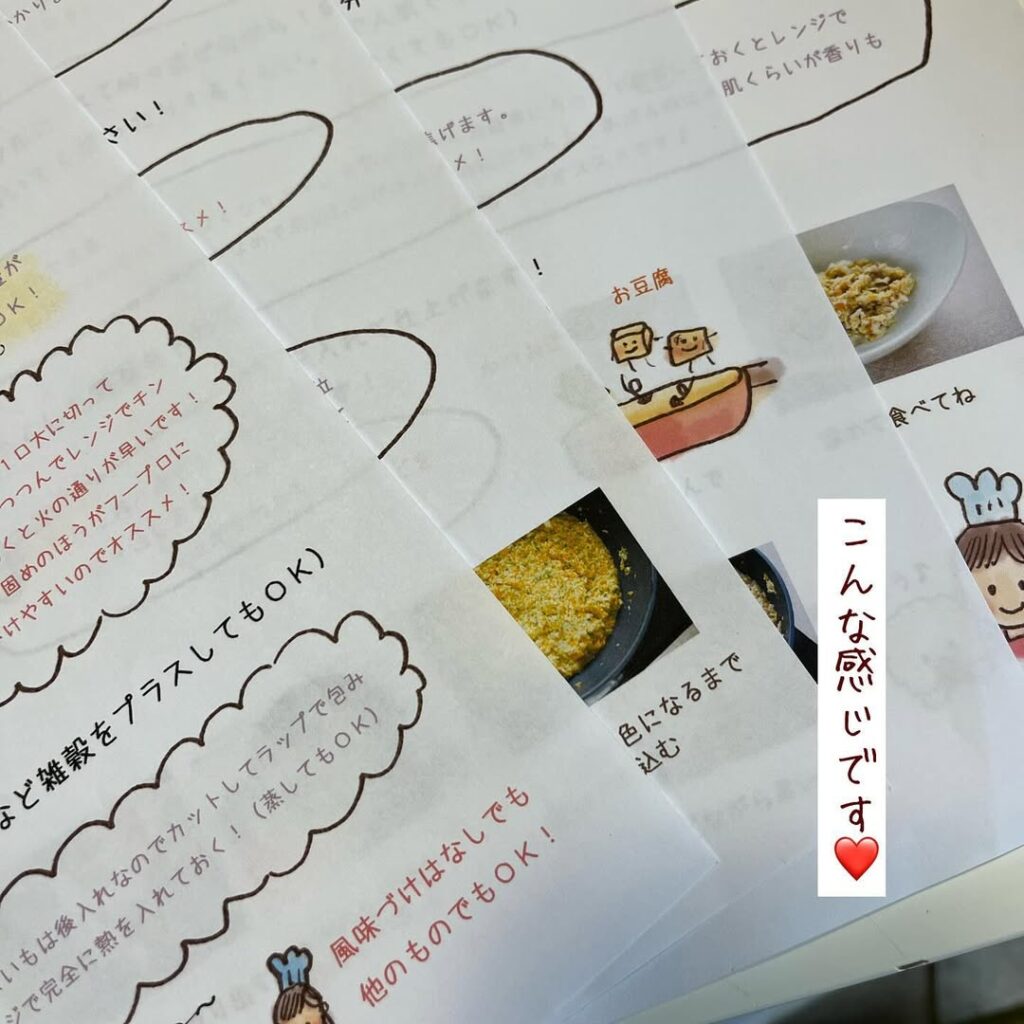 かり。
さい！
スメ！
が
OK！
１口大に切って
つつんでレンジでチン
くと火の通りが早いです！
固めのほうがフープロに
けやすいのでオススメ！
など雑穀をプラスしてもOK）
いもは後入れなのでカットしてラップで包み
ジで完全に熱を入れておく！（蒸してもOK）
風味づけはなしでも
他のものでもOK！
位
げます。
メ！
！
色になるまで
込む
お豆腐
おくとレンジで
肌くらいが香りも
食べてね
こんな感じです❤️